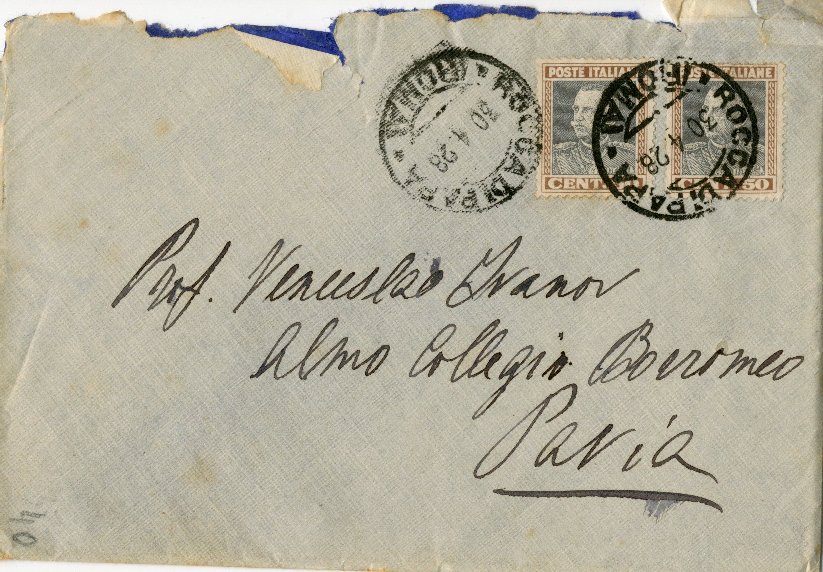 POSTE ITALIANE
POSTE ITALIANE
CENT. 50
CENT. 50
ROCCA DI PAPA (ROMA)
30.4.28
ROCCA DI PAPA (ROMA)
30.4.28
Prof. Venceslao Ivanov
Almo Collegio Borromeo
Pavia
40